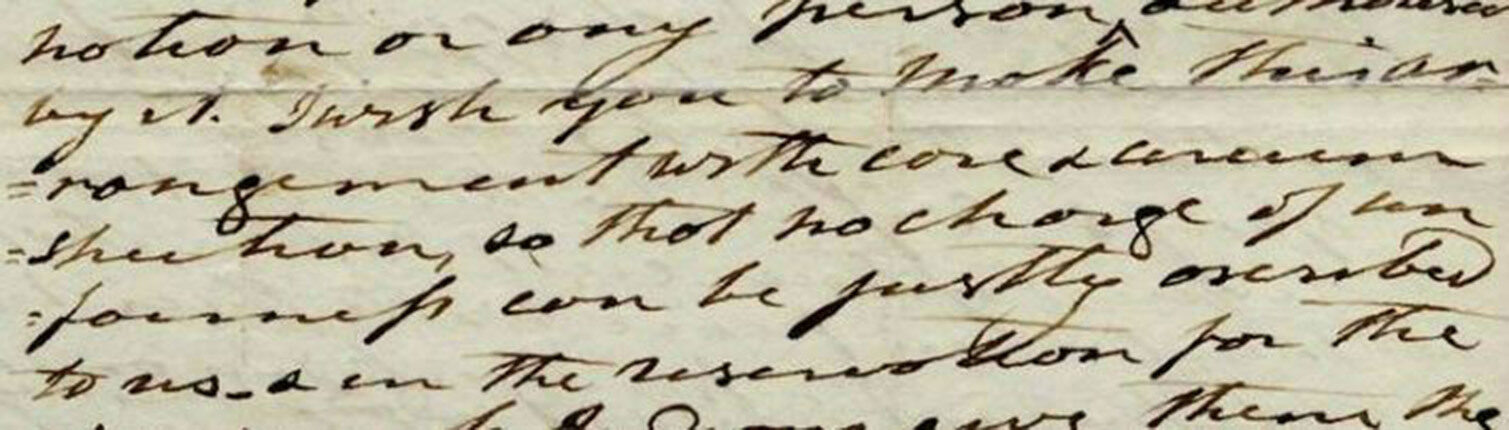 notion or any person authorised
by it. I wish you to make this ar-
=rangement with care & circum
=spection, so that no charge of un
=fairness can be justly ascribed
to us - & in the reservation for the
give them the